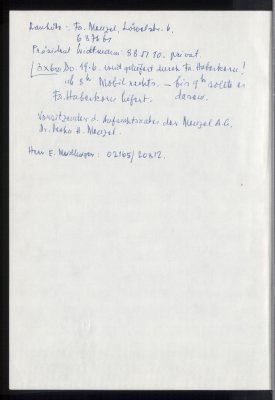 Fa. Menzel, Löwelstr. 6,
63 76 61
Präsident Widtmann: 38 57 80. privat.
Do. 19.6. wird geliefert durch Fa. Haberkorn!
ab 8h Mobil rechts. – bis 9h sollte es
Fa. Haberkorn liefert. dasein.
Vorsitzender d. Aufsichtsrates der Menzel A.G.
Dr. H. Menzel.
Herr E. : 02165/20812.